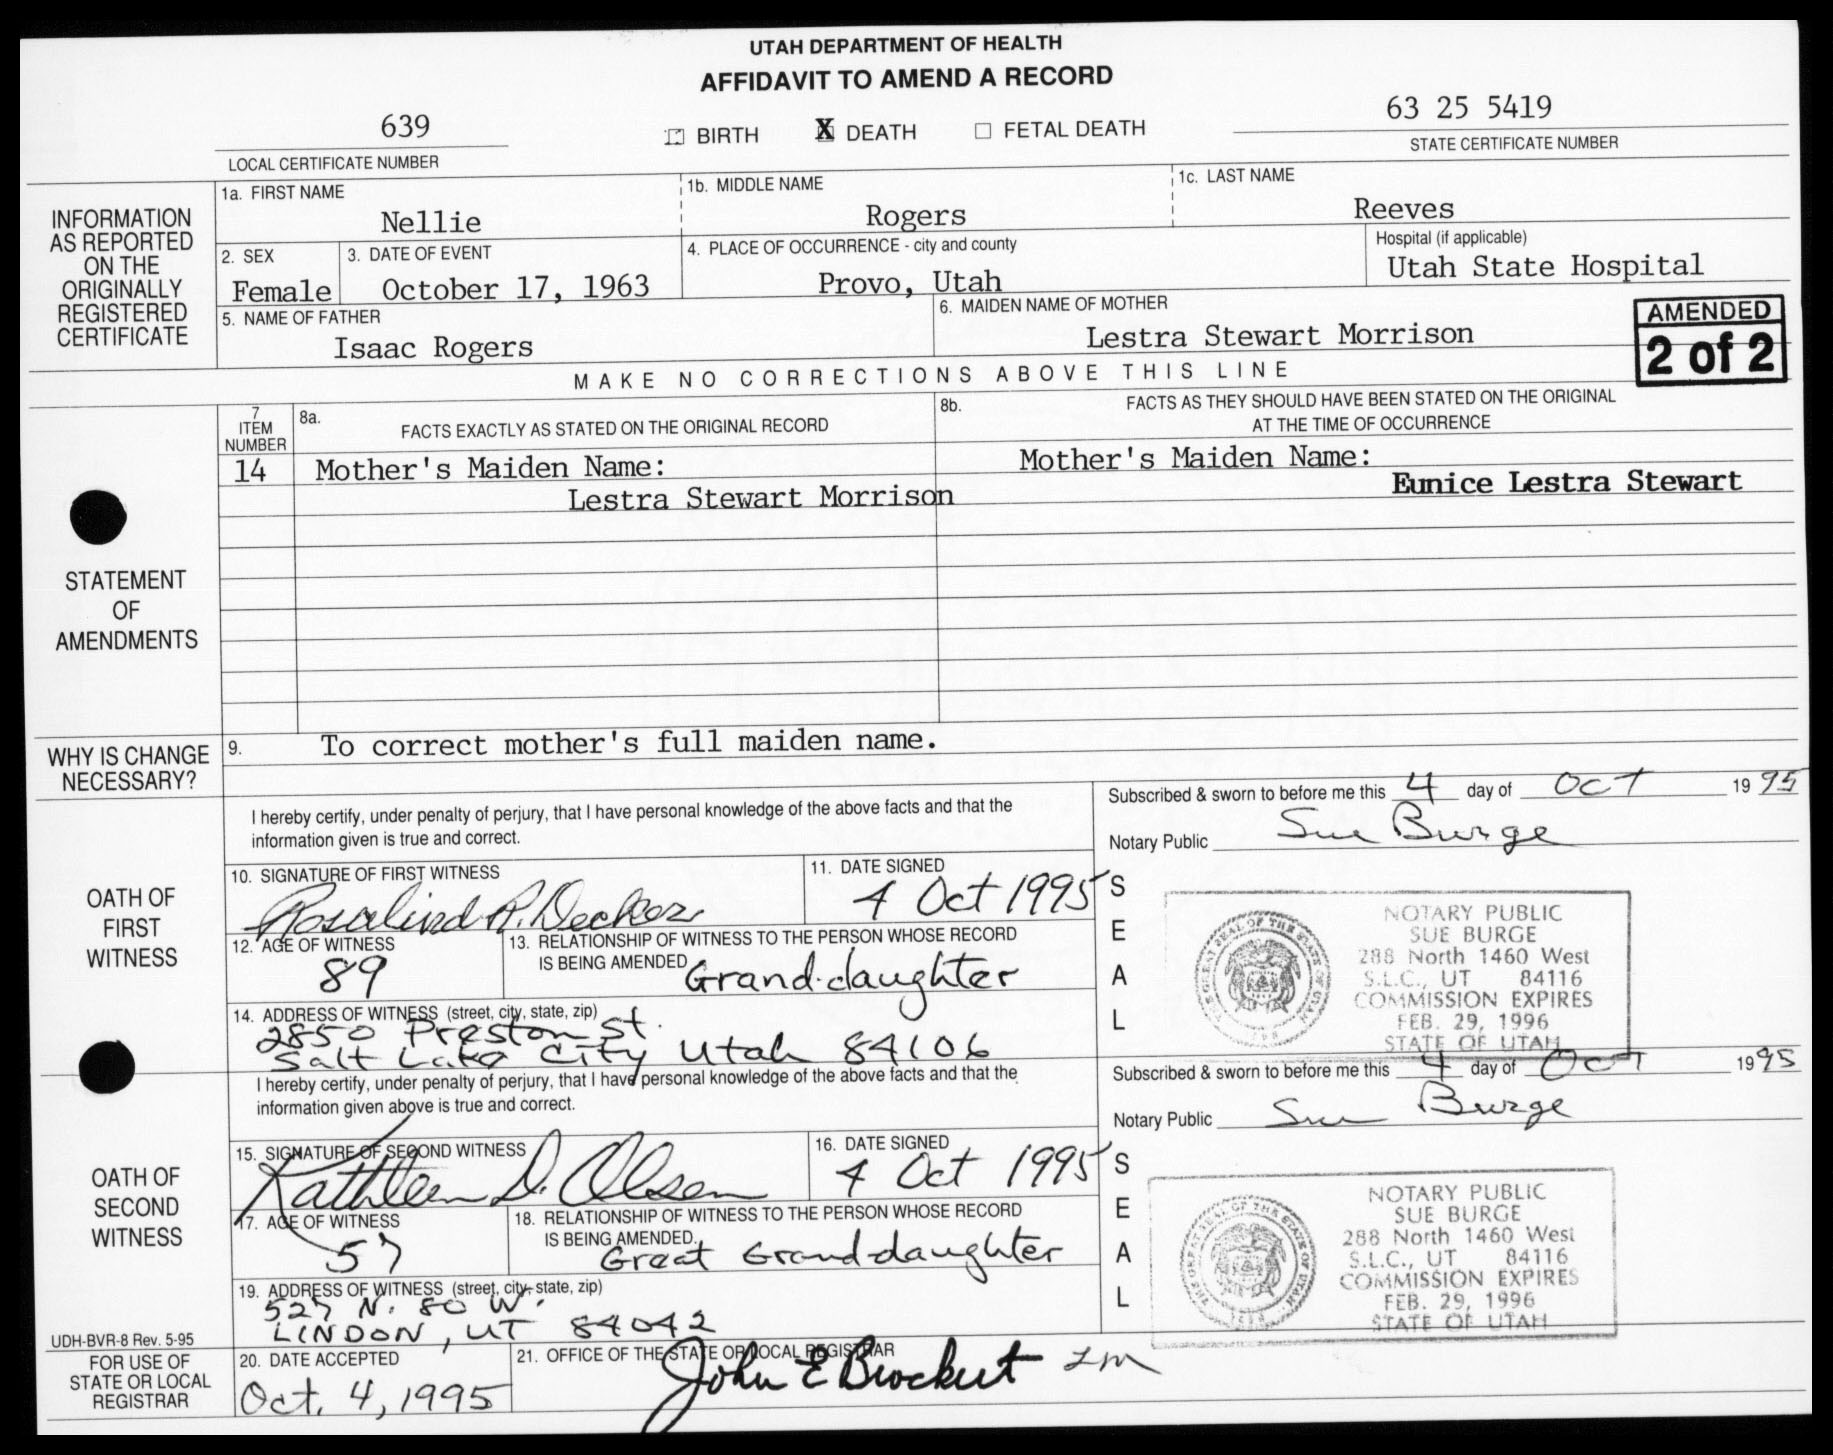 UTAH DEPARTMENT OF HEALTH
AFFIDAVIT TO AMEND A RECORD
639
LOCAL CERTIFICATE NUMBER
BIRTH X DEATH FETAL DEATH
63 25 5419
STATE CERTIFICATE NUMBER
INFORMATION AS REPORTED ON THE ORIGINALLY REGISTERED CERTIFICATE
1a. FIRST NAME 1b. MIDDLE NAME 1c. LAST NAME
Nellie Rogers Reeves
2. SEX 3. DATE OF EVENT 4. PLACE OF OCCURRENCE - city and county Hospital (if applicable)
Female October 17, 1963 Provo, Utah Utah State Hospital
5. NAME OF FATHER 6. MAIDEN NAME OF MOTHER
Isaac Rogers Lestra Stewart Morrison
AMENDED
2 of 2
MAKE NO CORRECTIONS ABOVE THIS LINE
STATEMENT OF AMENDMENTS
7 ITEM NUMBER
8a. FACTS EXACTLY AS STATED ON THE ORIGINAL RECORD
8b. FACTS AS THEY SHOULD HAVE BEEN STATED ON THE ORIGINAL
AT THE TIME OF OCCURRENCE
14 Mother's Maiden Name: Mother's Maiden Name:
Lestra Stewart Morrison Eunice Lestra Stewart
WHY IS CHANGE NECESSARY?
9. To correct mother's full maiden name.
OATH OF FIRST WITNESS
I hereby certify, under penalty of perjury, that I have personal knowledge of the above facts and that the
information given is true and correct.
Subscribed & sworn to before me this 4 day of Oct 1995
Notary Public Sue Burge
10. SIGNATURE OF FIRST WITNESS 11. DATE SIGNED
Rosalind R. Decker 4 Oct 1995
12. AGE OF WITNESS 13. RELATIONSHIP OF WITNESS TO THE PERSON WHOSE RECORD
IS BEING AMENDED
89 Grand-daughter
14. ADDRESS OF WITNESS (street, city, state, zip)
2850 Preston St.
Salt Lake City Utah 84106
SEAL
THE GREAT SEAL OF THE STATE OF UTAH
NOTARY PUBLIC
SUE BURGE
288 North 1460 West
S.L.C., UT 84116
COMMISSION EXPIRES
FEB. 29, 1996
STATE OF UTAH
OATH OF SECOND WITNESS
I hereby certify, under penalty of perjury, that I have personal knowledge of the above facts and that the
information given above is true and correct.
Subscribed & sworn to before me this 4 day of Oct 1995
Notary Public Sue Burge
15. SIGNATURE OF SECOND WITNESS 16. DATE SIGNED
Kathleen D. Olsen 4 Oct 1995
17. AGE OF WITNESS 18. RELATIONSHIP OF WITNESS TO THE PERSON WHOSE RECORD
IS BEING AMENDED.
57 Great Grand-daughter
19. ADDRESS OF WITNESS (street, city, state, zip)
527 N. 80 W.
LINDON, UT 84042
SEAL
THE GREAT SEAL OF THE STATE OF UTAH
NOTARY PUBLIC
SUE BURGE
288 North 1460 West
S.L.C., UT 84116
COMMISSION EXPIRES
FEB. 29, 1996
STATE OF UTAH
UDH-BVR-8 Rev. 5-95
FOR USE OF STATE OR LOCAL REGISTRAR
20. DATE ACCEPTED 21. OFFICE OF THE STATE OR LOCAL REGISTRAR
Oct. 4, 1995 John E Brockert LM